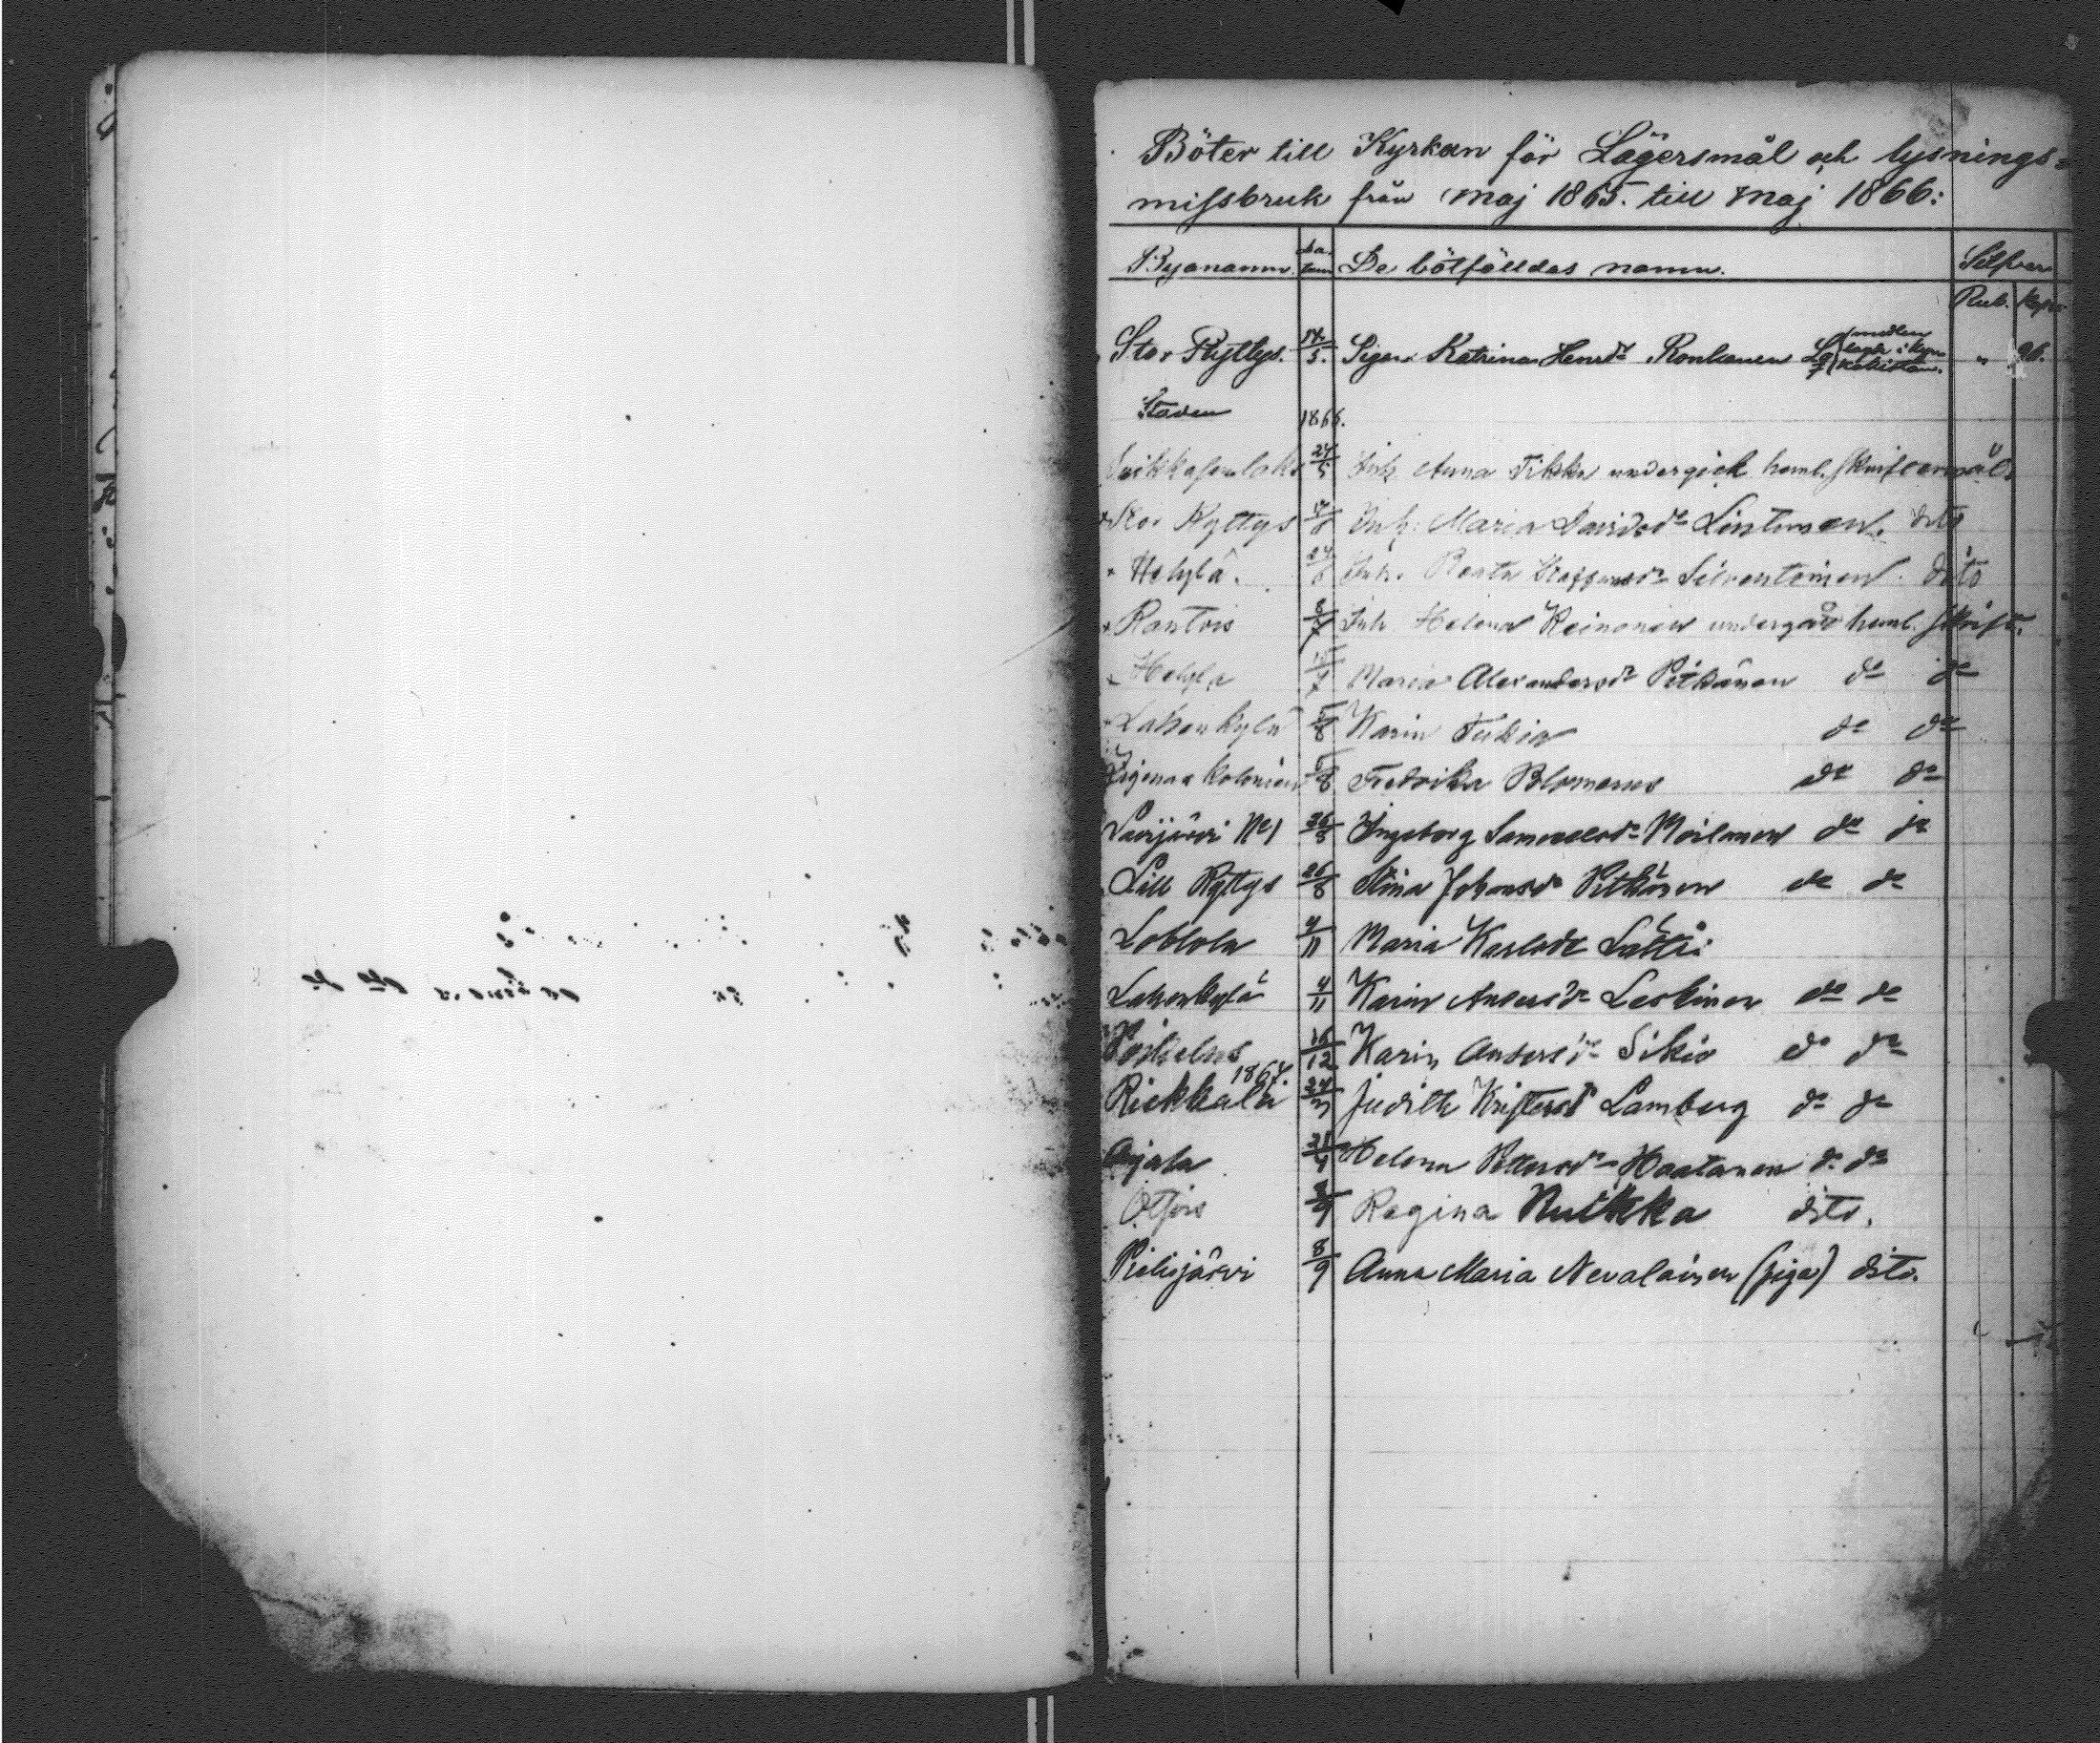 Böter till Kyrkan för Lägersmål och lysnings=
missbruk från maj 1865. till maj 1866:
Byanamn. Da-tum De bötfälldas namn. Silfver
Rub. Kop.
Stor Ryttys. 14/5. Pigan Katrina Henrsdr Ronkanen 96.
Staden 1866.
24/5 Inh. Anna Tikka undergick heml. skriftermål.
Stor Ryttys Inh. Maria Davidsdr Lintunen. dito
Helylä. Inh. Beata Silventoinen. dito
Rantois 8/7 Inh Helena Keinonen undergår heml. skrift.
Helylä Maria Alexandersdr Pitkänen do do
Lahenkylä 5/8 Karin Tukia do do
Zigenar Kolonien 5/8 Fredrika Blomerus do do
Suurijärvi No 1 26/8 Ingeborg Samuelsdr Moilanen do do
Lill Ryttys 26/8 Stina Johansdr Pitkänen do do
Loblola 4/11 Maria Karlsdr Lätti
Lahenkylä 4/11 Karin Andersdr Leskinen do do
16/12 Karin Andersdr Sikiö do do
1867.
Riekkala 24/3 Judith Kristersdr Lamberg do do
Anjala Helena Pettersdr Haatanen do do
Otsois 8/9 Regina Nuikka dito.
Pielisjärvi 8/9 Anna Maria Nevalainen (piga) dito.